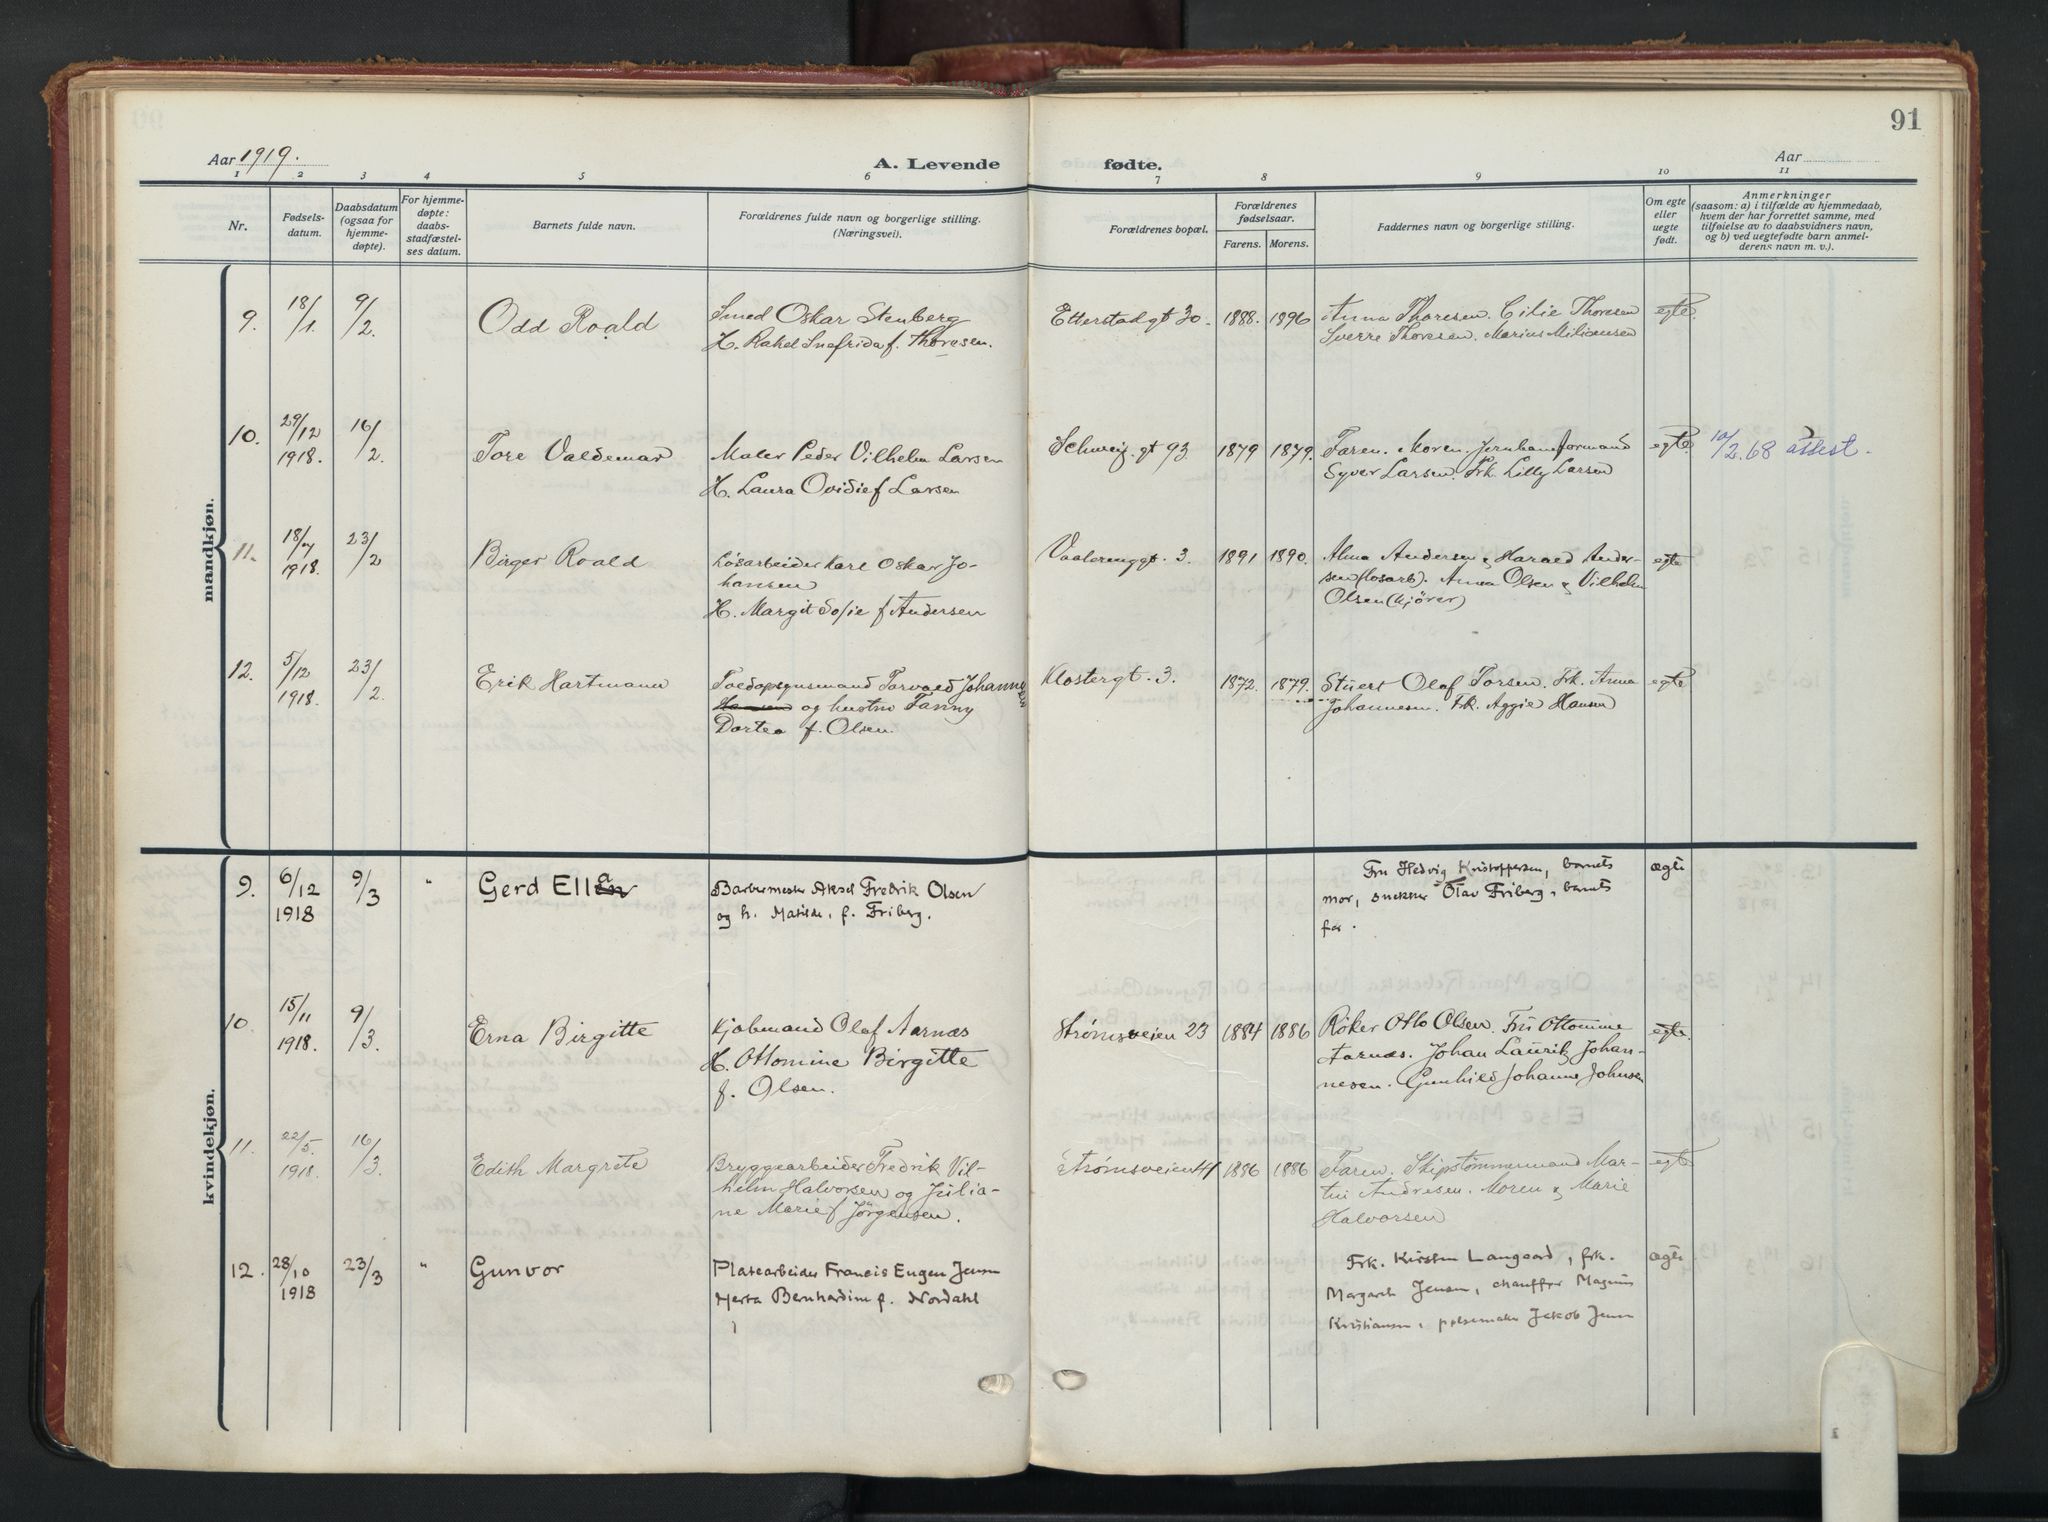 91
Aar 1919.
A. Levende
fødte.
Aar
1 2 3 4 5 6 7 8 9 10 11
Nr.
Fødsels-
datum.
Daabsdatum
(ogsaa for
hjemme-
døpte).
For hjemme-
døpte:
daabs-
stadfæstel-
ses datum.
Barnets fulde navn.
Forældrenes fulde navn og borgerlige stilling.
(Næringsvei).
Forældrenes bopæl.
Forældrenes
fødselsaar.
Farens. Morens.
Faddernes navn og borgerlige stilling.
Om egte
eller
uegte
født.
Anmerkninger
(saasom: a) i tilfælde av hjemmedaab,
hvem der har forrettet samme, med
tilføielse av to daabsvidners navn,
og b) ved uegtefødte barn anmel-
derens navn m. v.).
mandkjøn.
9.
18/1.
9/2.
Odd Roald
Smed Oskar Stenberg
H. Rakel Snefrida f. Thoresen.
Etterstadgt 30.
1888. 1896
Anna Thoresen. Cilie Thoresen
Sverre Thoresen. Marius Miliansen
egte
10.
29/12
1918.
16/2.
Tore Valdemar
Maler Peder Vilhelm Larsen
H. Laura Ovidie f Larsen
Schweig. gt 93
1879 1879.
Faren. Moren. Jernbaneformand
Syver Larsen. Frk. Lilly Larsen
egte
10/2.68 attest.
11.
18/7
1918.
23/2
Birger Roald
Løsarbeider Karl Oskar Jo-
hansen
H. Margit Sofie f Andersen
Vaalerenggt. 3.
1891 1890.
Alma Andersen & Harald Ander-
sen (løsarb). Anna Olsen & Vilhelm
Olsen (kjører)
egte
12.
5/12
1918.
23/2.
Erik Hartmann
Toldopsynsmand Torvald Johannesen
Hansen og hustru Fanny
Dortea f. Olsen.
Klostergt. 3.
1872. 1879.
Stuert Olaf Torsen. Frk. Anna
Johannesen. Frk. Aggie Hansen
egte
kvindekjøn.
9.
6/12
1918
9/3
"
Gerd Ellena
Barbermester Aksel Fredrik Olsen
og h. Matilde, f. Friberg.
Fru Hedvig Kristoffersen, barnets
mor, snekker Olav Friberg, barnets
far.
ægte
10.
15/11
1918.
9/3.
Erna Birgitte
Kjøbmand Olaf Aarnæs
H. Ottomine Birgitte
f. Olsen.
Strømsveien 23
1884 1886
Røker Otto Olsen. Fru Ottomine
Aarnæs. Johan Lauritz Johan-
nesen. Gunhild Johanne Johnsen
egte.
11.
22/5.
1918.
16/3.
Edith Margrete
Bryggearbeider Fredrik Vil-
helm Halvorsen og Julia-
ne Marie f Jørgensen.
Strømsveien 41
1886 1886
Faren. Skipstømmermand Mar-
tin Andresen. Moren & Marie
Halvorsen
egte
12.
28/10
1918
23/3
"
Gunvor
Platearbeider Francis Eugen Jensen
Herta Bernhardine f. Nordahl
Frk. Kirsten Langaard, frk.
Margareth Jensen, chauffør Magnus
Kristiansen, pølsemaker Jakob Jensen
ægte